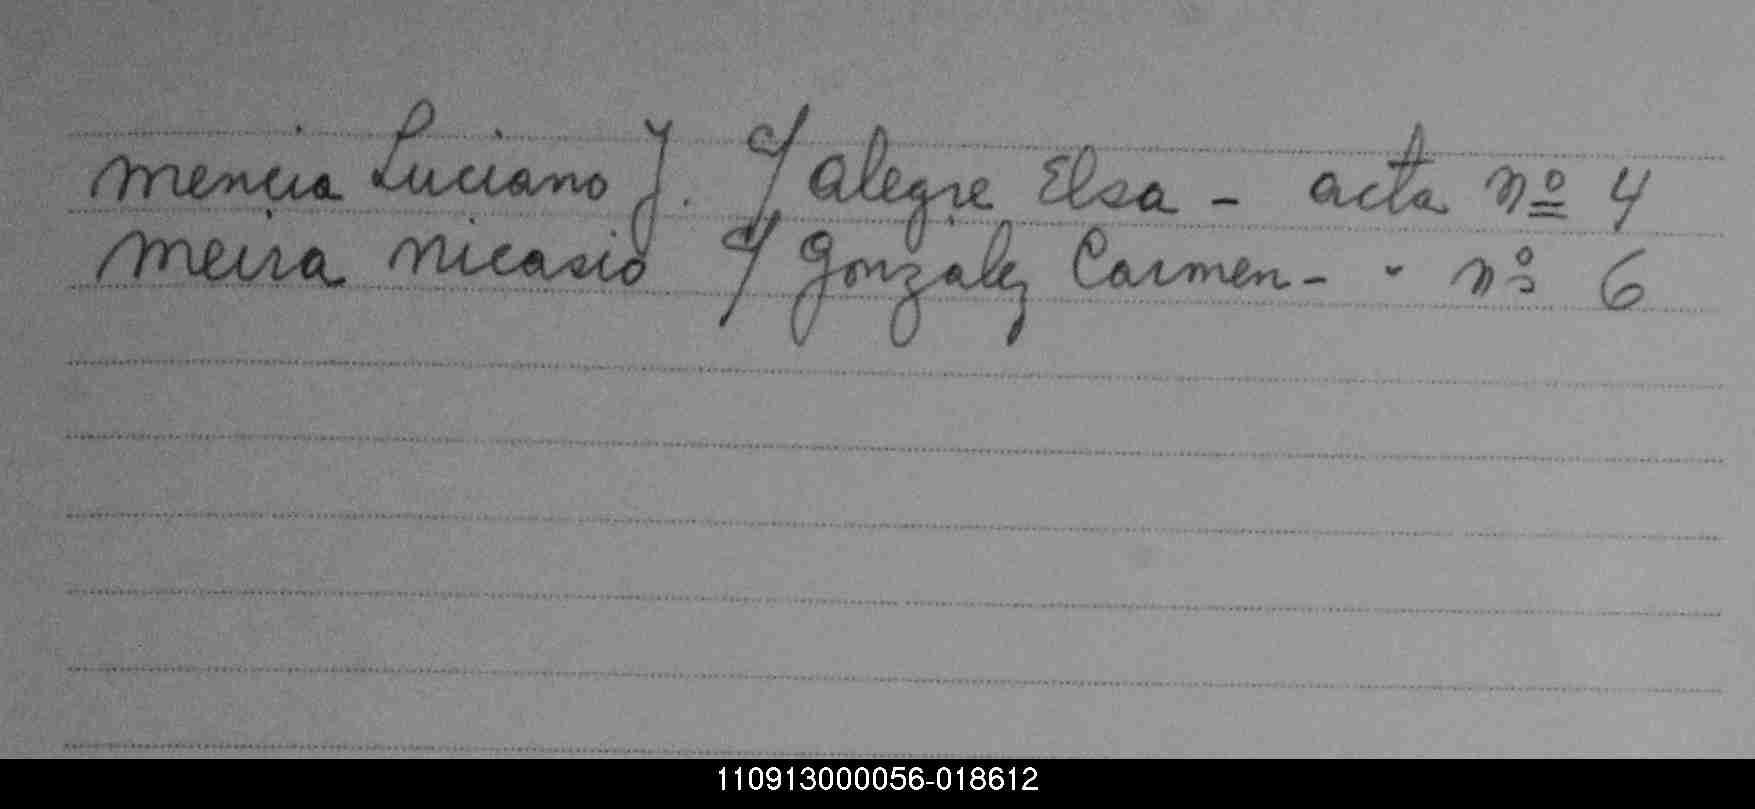 Mencia Luciano J. c/ Alegre Elsa - acta nº 4
Meira Nicasio c/ Gonzalez Carmen - " nº 6
110913000056-018612